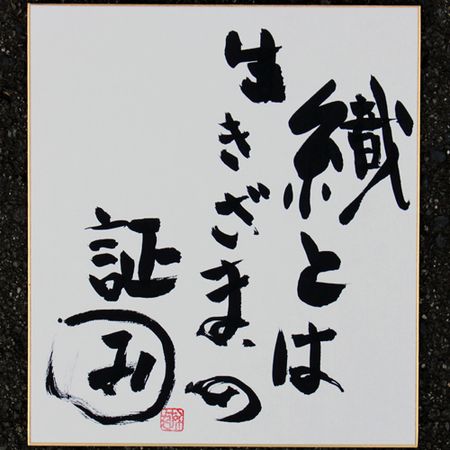 織とは
生きざまの
証
み